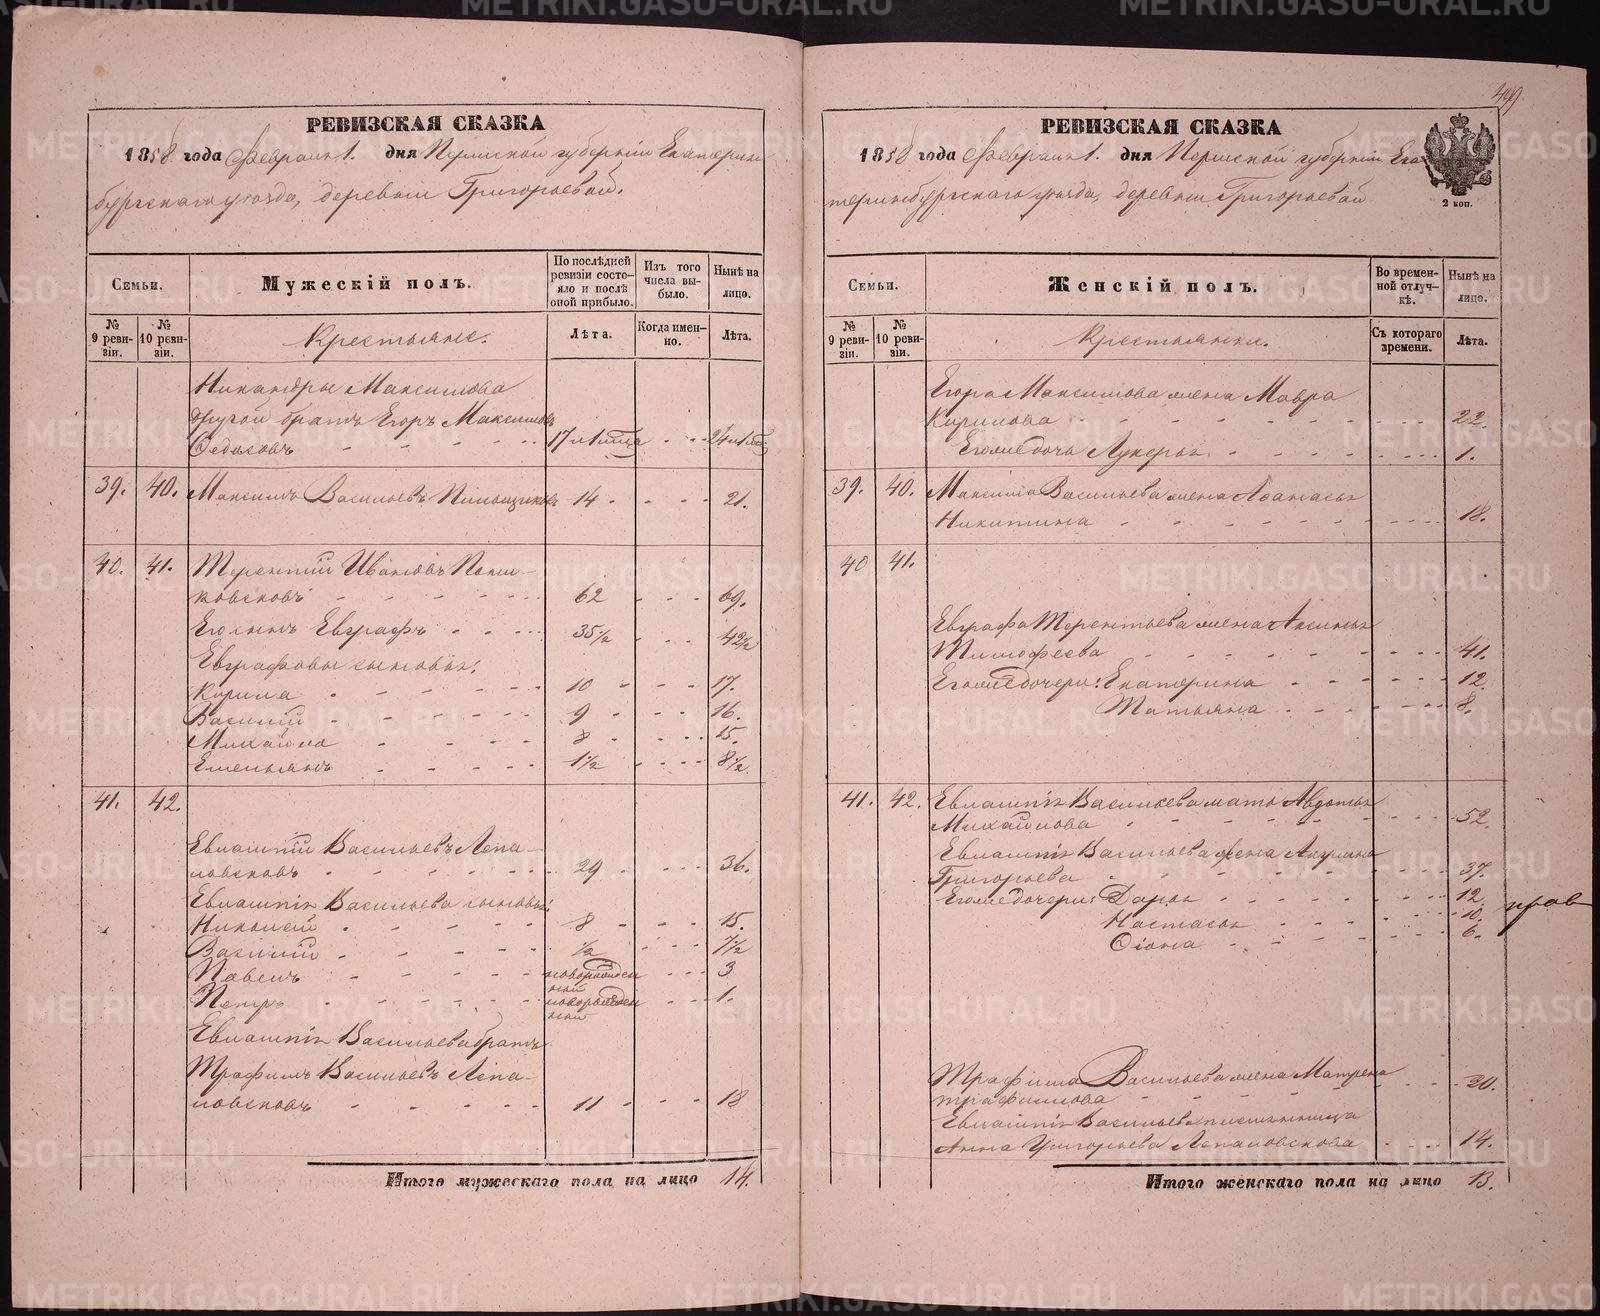 499
РЕВИЗСКАЯ СКАЗКА
1858 года Февраля 1. дня Пермской губерніи Екатерин-
бургскаго уѣзда, деревни Григорьевой.
Семьи.
Мужескій полъ.
По послѣдней ревизіи состо-
яло и послѣ оной прибыло.
Изъ того числа вы-
было.
Нынѣ на лицо.
№ 9 реви-
зіи.
№ 10 реви-
зіи.
Крестьяне.
Лѣта.
Когда имен-
но.
Лѣта.
Никандры Максимова
другой братъ Егоръ Максимовъ
Седасовъ 17 и 1 мѣца 24 и 1 мѣ.
39. 40. Максимъ Васильевъ Пильщиковъ 14 21.
40. 41. Терентій Ивановъ
62 69.
Его сынъ Евграфъ 35½ 42½
Евграфовы сыновья:
Кирила 10 17.
Василій 9 16.
Михайла 8 15.
Емельянъ 1½ 8½
41. 42.
Евлампій Васильевъ Лепа-
ловсковъ 29 36.
Евлампія Васильева сыновья:
Николай 8 15.
Василій ½ 7½
Павелъ новорожден
ный 3
Петръ новорожден
ный 1.
Евлампія Васильева братъ
Трафимъ Васильевъ Лепа-
ловсковъ 11 18
Итого мужескаго пола на лицо 14.
РЕВИЗСКАЯ СКАЗКА
1858 года Февраля 1. дня Пермской губерніи Ека-
теринбургскаго уѣзда, деревни Григорьевой
2 коп.
Семьи.
Женскій полъ.
Во времен-
ной отлуч-
кѣ.
Нынѣ на лицо.
№ 9 реви-
зіи.
№ 10 реви-
зіи.
Крестьянки.
Съ котораго времени.
Лѣта.
Егора Максимова жена Мавра
Кирилова 22.
Его же дочь Лукерья 1.
39. 40. Максима Васильева жена Афанасья
Никитина 18.
40 41.
Евграфа Терентьева жена Аксинья
Тимофеева 41.
Его же дочери: Екатерина 12.
Татьяна 8.
41. 42. Евлампія Васильева мать Авдотья
Михайлова 52.
Евлампія Васильева жена Акулина
Григорьева 37.
Его же дочери: Дарья 12.
Настасья 10.
Фіона 6.
прав
Трафима Васильева жена Матрена
Трафимова 20.
Евлампія Васильева племянница
Анна Григорьева Лепаловскова 14.
Итого женскаго пола на лицо 13.
METRIKI.GASO-URAL.RU